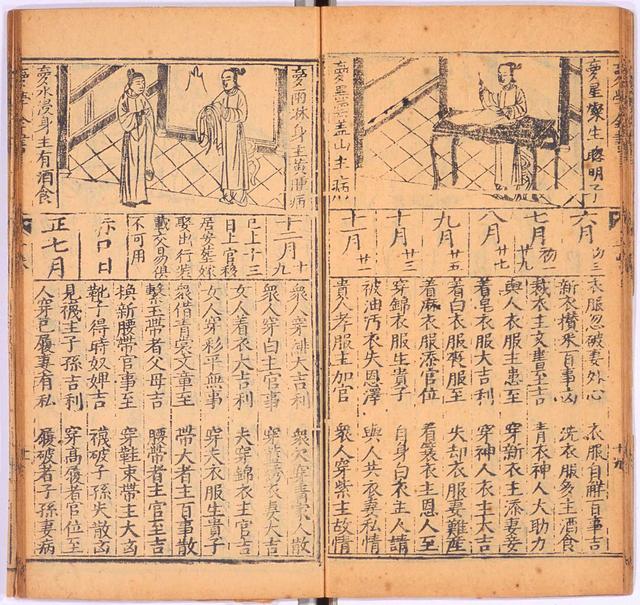 夢星家生聰明子
夢黑雲蓋山主病
六月 初三
七月 初一 廿九
八月 廿七
九月 廿五
十月 廿三
十一月 廿一
衣服忽破妻外心
衣服自解百事吉
新衣攢來百事凶
洗衣服多主酒食
裁衣主文書至吉
青衣神人大助力
與人衣服主患至
穿新衣主添妻妾
着皂衣服大吉利
穿神人衣主大吉
着白衣服孝服至
失却衣服妻難產
着麻衣服添官位
着簑衣主恩人至
穿錦衣服生貴子
自身白衣主人請
被油污衣失恩澤
與人共衣妻私情
貴人孝服主加官
眾人穿紫主故情
夢雨淋身主黃腫病
夢水浸身主有酒食
十二月 十九
已上十三
日上官移
居安葬嫁
娶出行裝
載交易俱
不可用
口日
正七月
眾人穿緋大吉利
穿青家人散
眾人穿白主官事
穿繡衣妻大吉
女人着衣大吉利
夫穿錦衣主官吉
女人穿彩平無事
穿夫衣服生貴子
眾借青裳文章至
帶大者主百事散
繫玉帶者父母吉
腰帶者主官至吉
換新腰帶官事至
穿鞋束帶主大凶
靴子得時奴婢吉
襪破子孫失散凶
見襪主子孫吉利
穿高履者官位至
人穿己履妻有私
履破者子孫妻病